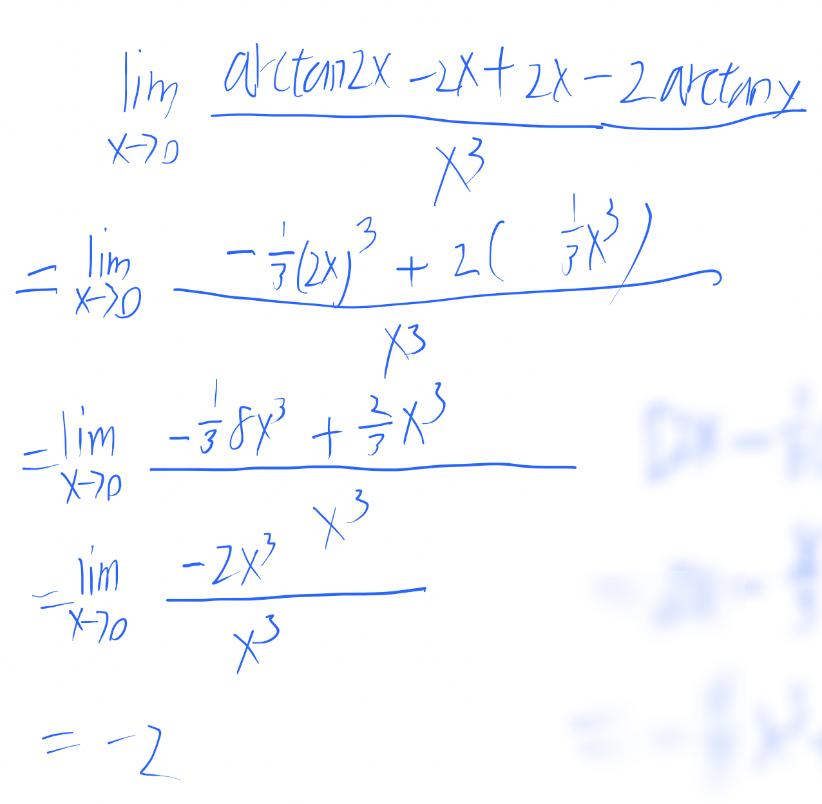 lim x→0 (arctan2x - 2x + 2x - 2arctanx) / x³
= lim x→0 (-1/3(2x)³ + 2( 1/3x³)) / x³
= lim x→0 (-1/3 8x³ + 2/3x³) / x³
= lim x→0 -2x³ / x³
= -2